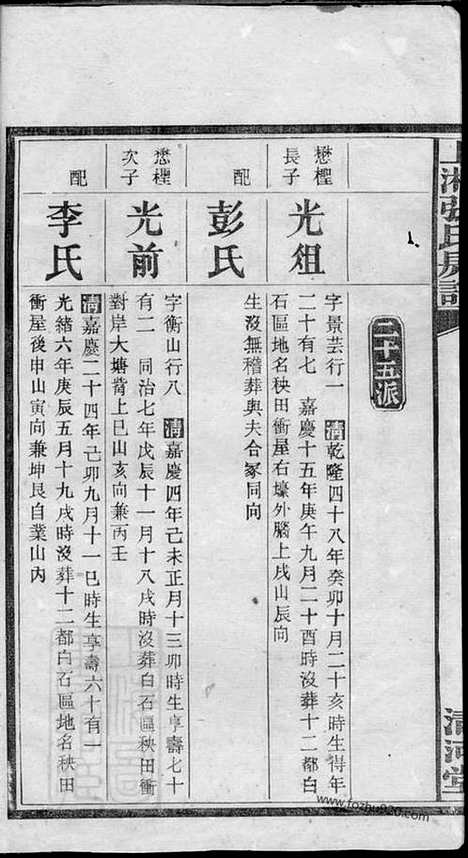 上湘張氏房譜
清河堂
二十五派
懋檉長子
光祖
字景芸行一 清乾隆四十八年癸卯十月二十亥時生得年
二十有七 嘉慶十五年庚午九月二十酉時沒葬十二都白
石區地名秧田衝屋右壕外腦上戌山辰向
配
彭氏
生沒無稽葬與夫合冢同向
懋檉次子
光前
字衡山行八 清嘉慶四年己未正月十三卯時生享壽七十
有二 同治七年戊辰十一月十八戌時沒葬白石區秧田衝
對岸大塘膋上巳山亥向兼丙壬
配
李氏
清嘉慶二十四年己卯九月十一巳時生享壽六十有一
光緒六年庚辰五月十九戌時沒葬十二都白石區地名秧田
衝屋後申山寅向兼坤艮自業山內
www.fozhu920.com